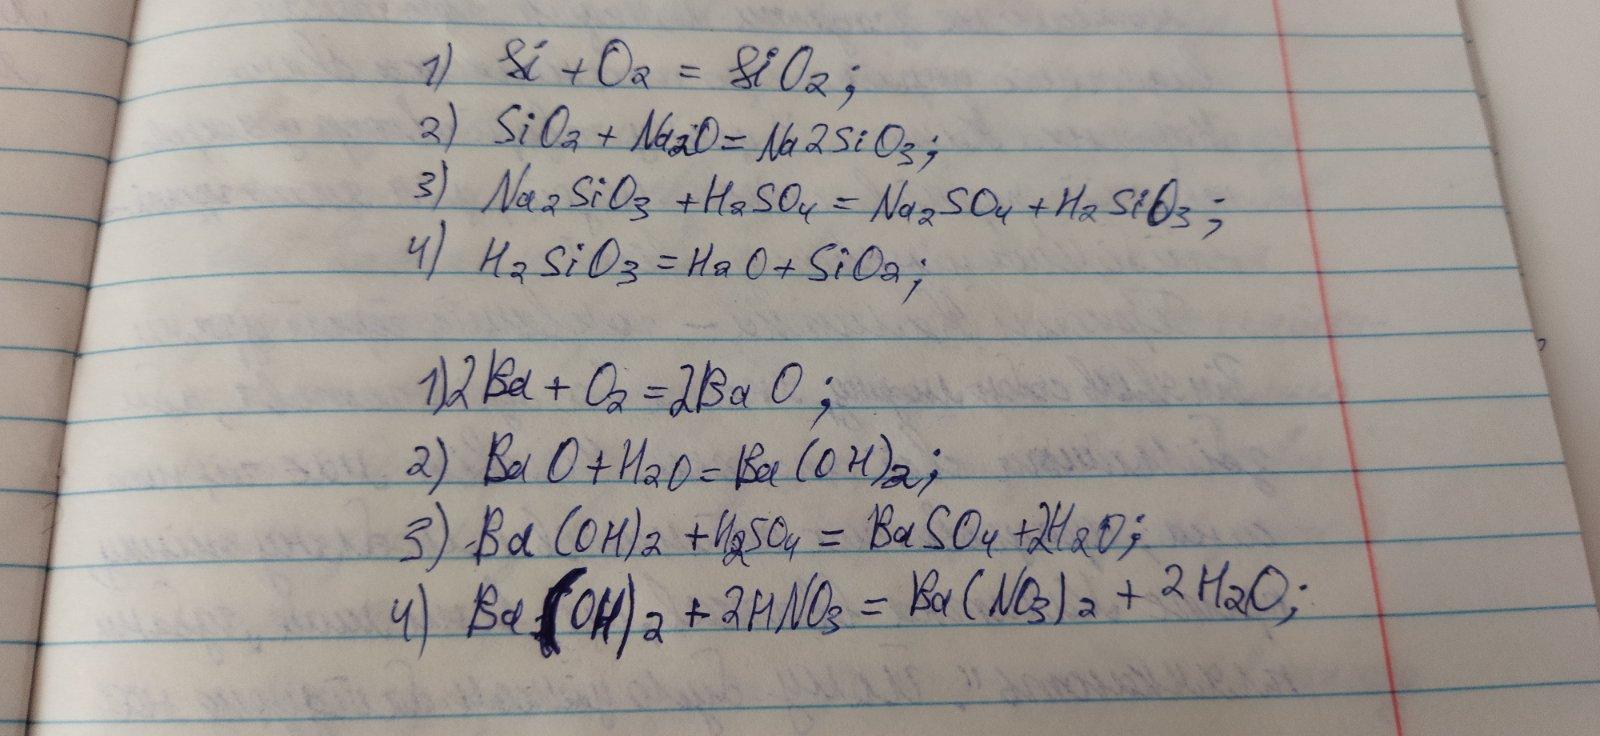 1) Si + O₂ = SiO₂;
2) SiO₂ + Na₂O = Na2SiO₃;
3) Na₂SiO₃ + H₂SO₄ = Na₂SO₄ + H₂SiO₃;
4) H₂SiO₃ = H₂O + SiO₂;
1) 2Ba + O₂ = 2BaO;
2) BaO + H₂O = Ba(OH)₂;
3) Ba(OH)₂ + H₂SO₄ = BaSO₄ + 2H₂O;
4) Ba(OH)₂ + 2HNO₃ = Ba(NO₃)₂ + 2H₂O;